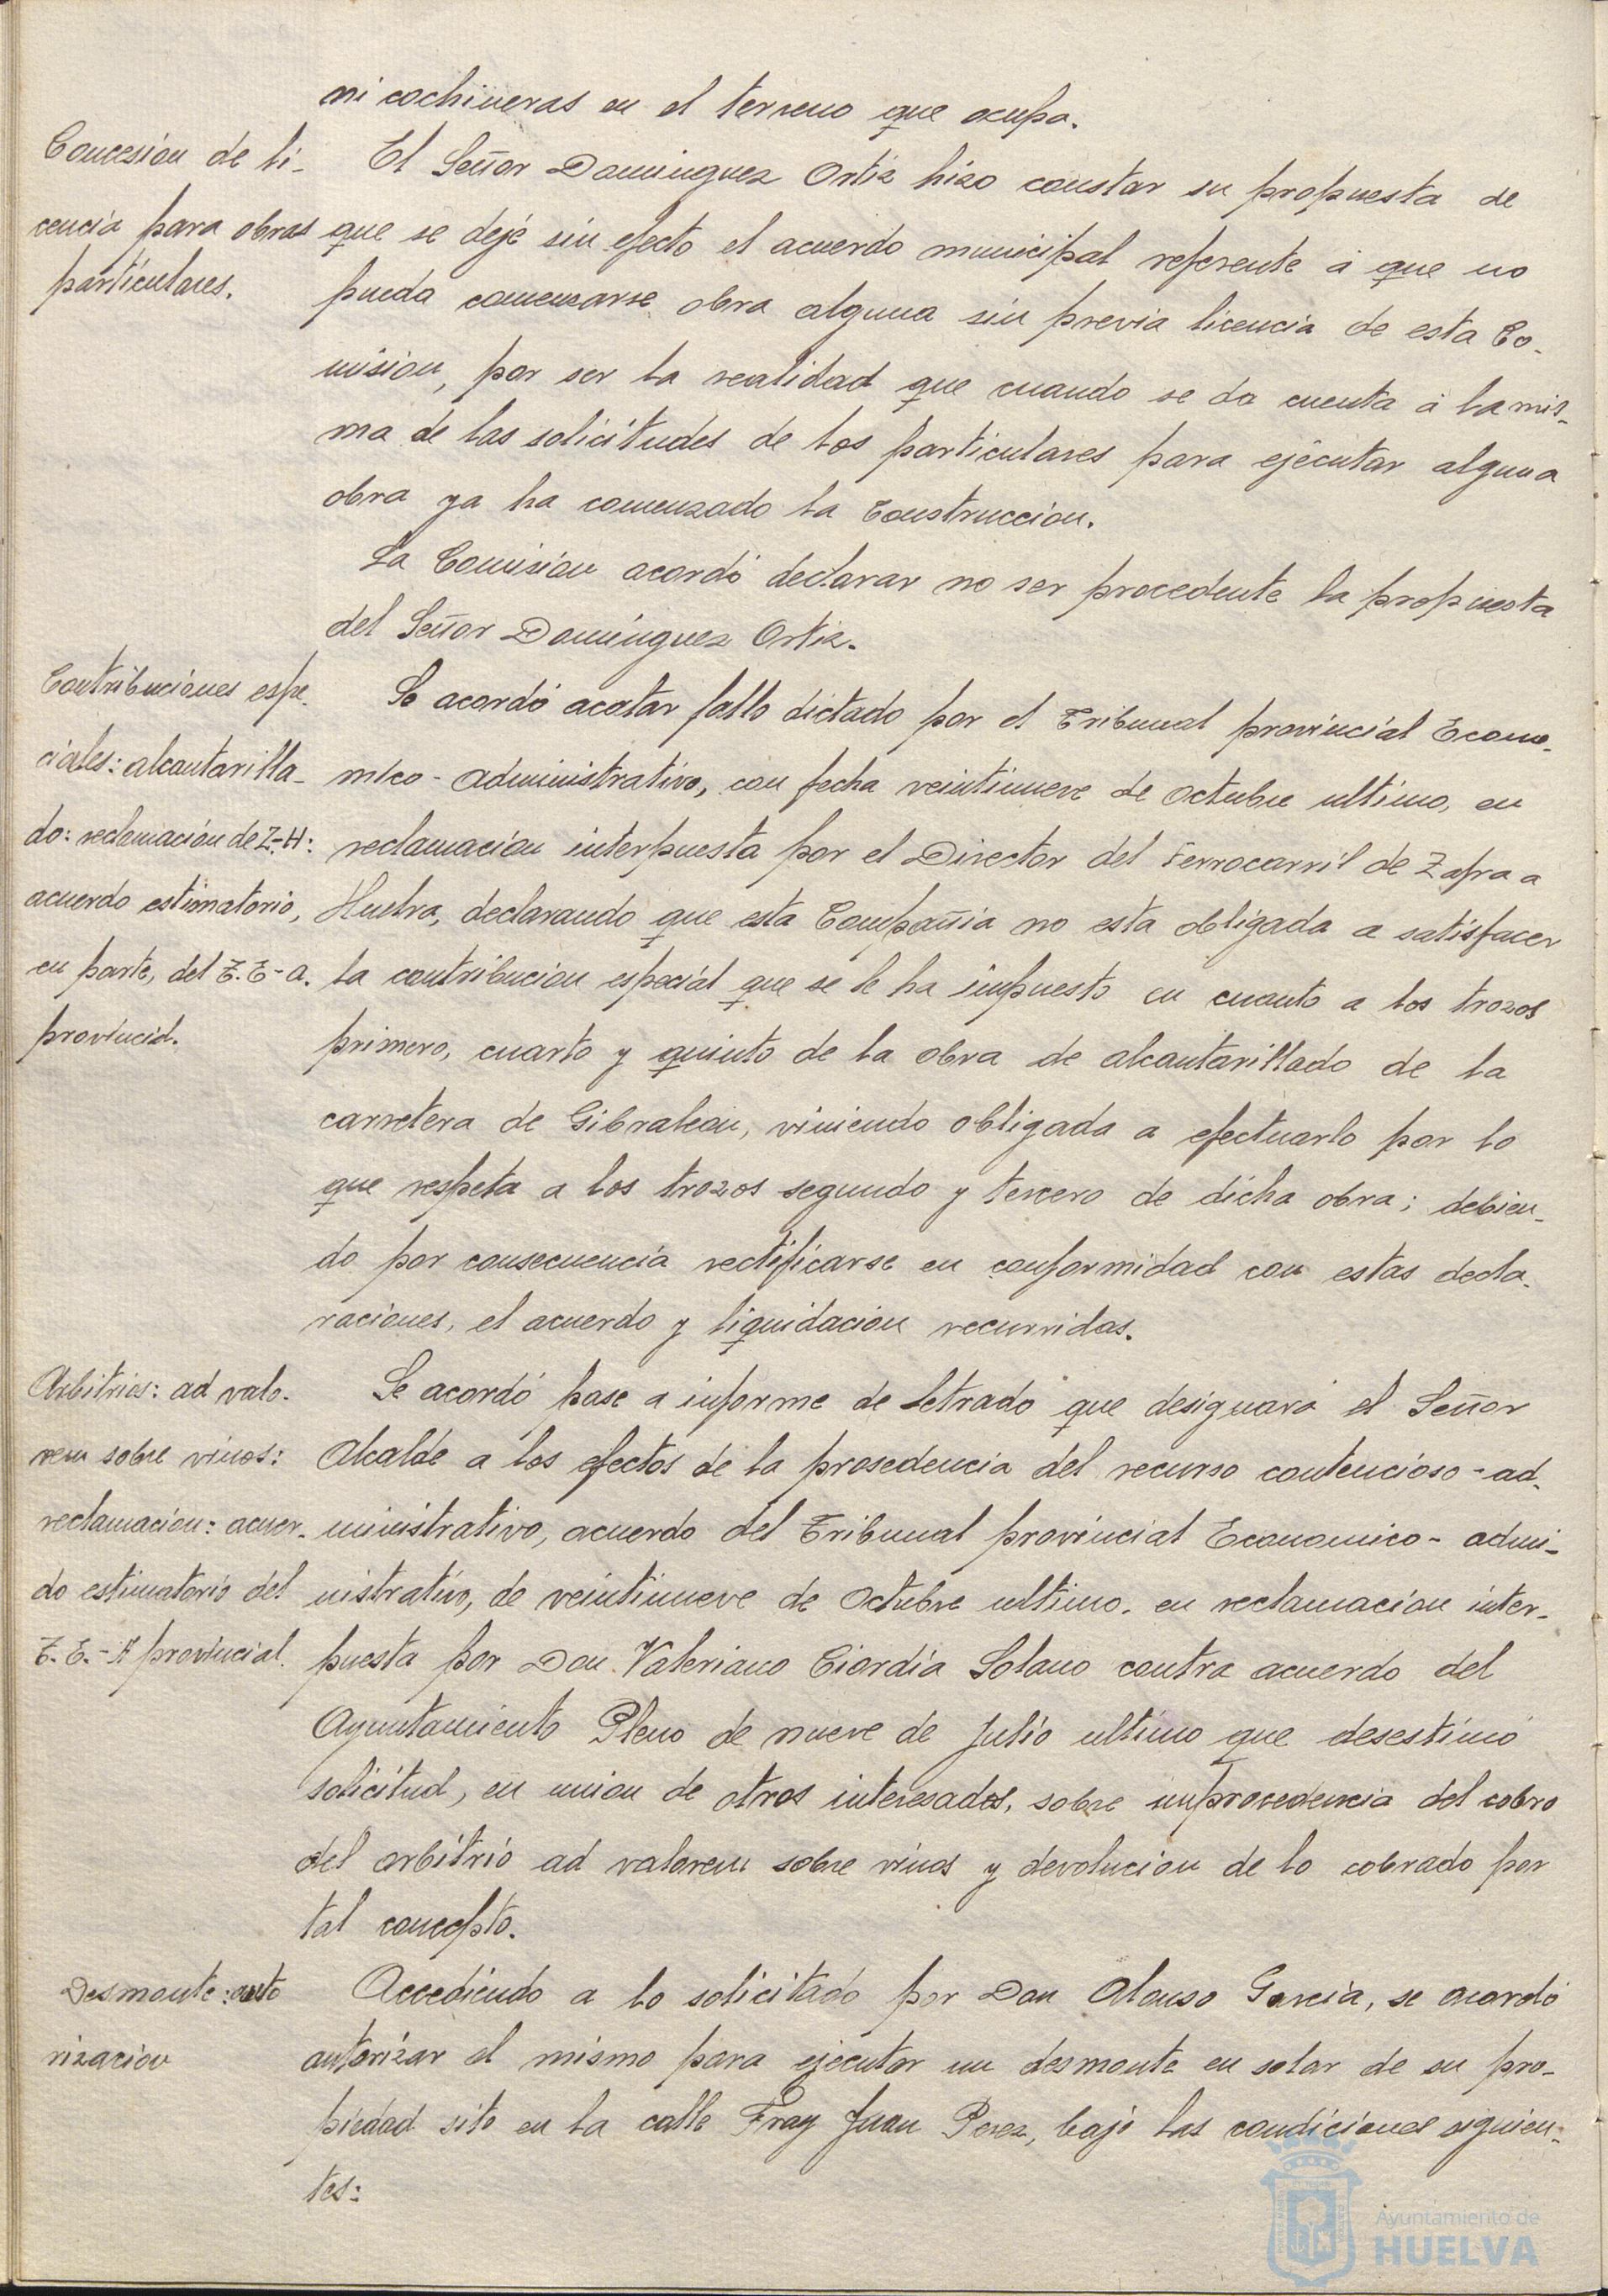 ni cochineras en el terreno que ocupa.
Concesión de li-
cencia para obras
particulares.
El Señor Dominguez Ortiz hizo constar su propuesta de
que se deje sin efecto el acuerdo municipal referente á que no
pueda comenzarse obra alguna sin previa licencia de esta Co-
misión, por ser la realidad que cuando se da cuenta á la mis-
ma de las solicitudes de los particulares para ejecutar alguna
obra ya ha comenzado la construccion.
La Comisión acordó declarar no ser procedente la propuesta
del Señor Dominguez Ortiz.
Contribuciones espe-
ciales: alcantarilla-
do: reclamación de Z-H:
acuerdo estimatorio,
en parte, del T.E-a.
provincial.
Se acordó acatar fallo dictado por el Tribunal provincial Econo-
mico-administrativo, con fecha veintinueve de octubre ultimo, en
reclamación interpuesta por el Director del Ferrocarril de Zafra a
Huelva, declarando que esta Compañia no esta obligada a satisfacer
la contribucion especial que se le ha impuesto en cuanto a los trozos
primero, cuarto y quinto de la obra de alcantarillado de la
carretera de Gibraleon, viniendo obligada a efectuarlo por lo
que respeta a los trozos segundo y tercero de dicha obra; debien-
do por consecuencia rectificarse en conformidad con estas decla-
raciones, el acuerdo y liquidacion recurridas.
Arbitrios: ad valo-
rem sobre vinos:
reclamacion: acuer-
do estimatorio del
T.E.-A provincial.
Se acordó pase a informe de Letrado que designará el Señor
Alcalde a los efectos de la prosedencia del recurso contencioso-ad-
ministrativo, acuerdo del Tribunal provincial Economico-admi-
nistrativo, de veintinueve de Octubre ultimo, en reclamacion inter-
puesta por Don Valeriano Ciordia Solano contra acuerdo del
Ayuntamiento Pleno de nueve de Julio ultimo que desestimó
solicitud, en union de otros interesados, sobre improcedencia del cobro
del arbitrio ad valorem sobre vinos y devolucion de lo cobrado por
tal concepto.
Desmonte: auto
rización
Accediendo a lo solicitado por Don Alonso Garcia, se acordó
autorizar el mismo para ejecutar un desmonte en solar de su pro-
piedad sito en la calle Fray Juan Perez, bajo las condiciones siguien-
tes:
Ayuntamiento de
HUELVA